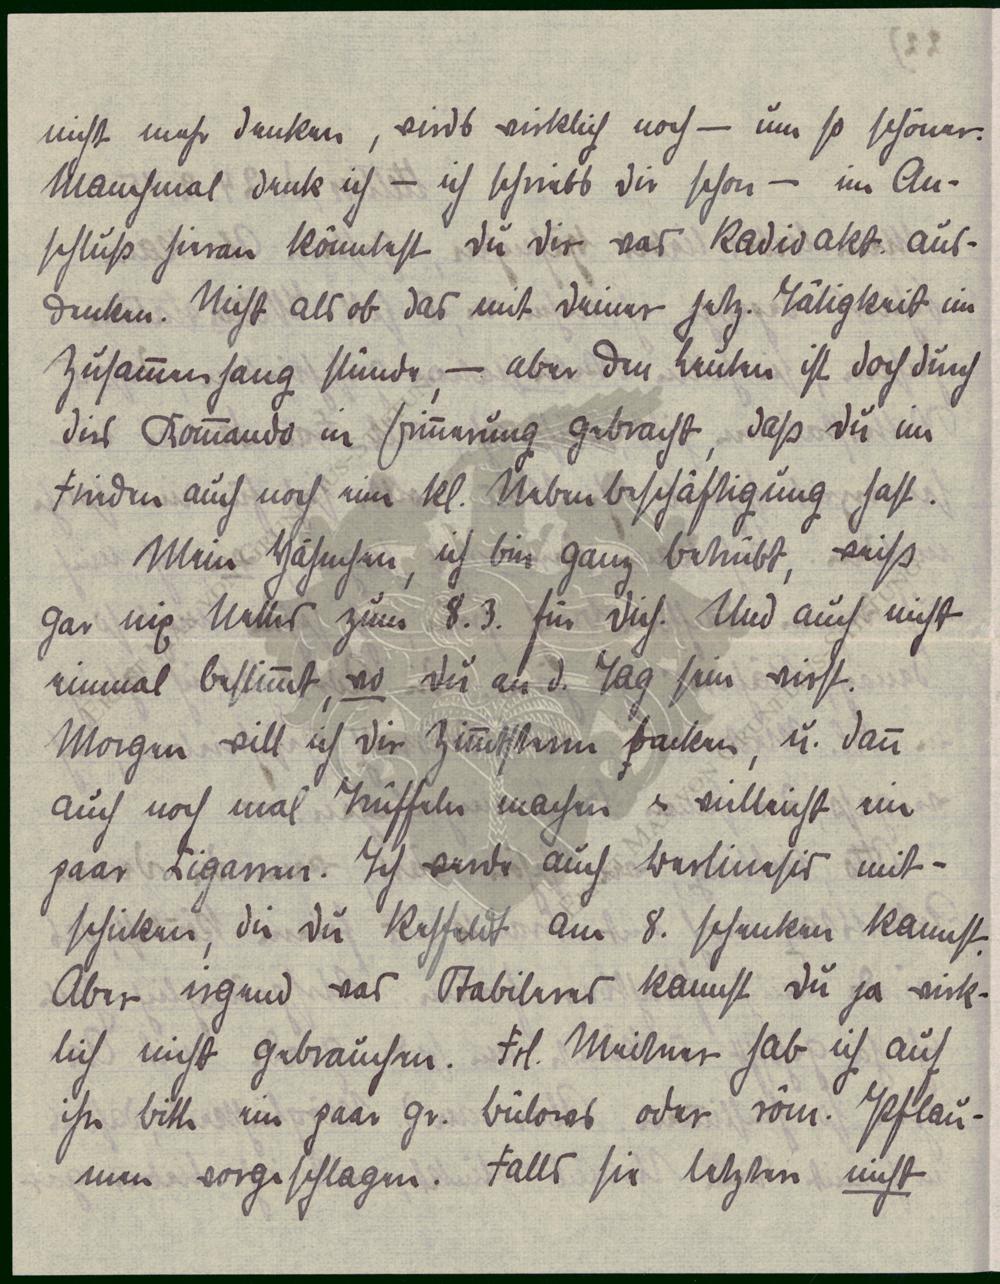 nicht mehr denken, wirds wirklich noch — um so schöner.
Manchmal denk ich — ich schriebs dir schon — im An-
schluß hieran könntest du dir was Radioakt. aus-
denken. Nicht als ob das mit deiner jetz. Tätigkeit im
Zusam̅enhang stünde, — aber den Leuten ist doch durch
dies Kom̅ando in Erin̅erung gebracht, daß du im
Frieden auch noch eine kl. Nebenbeschäftigung hast.
Mein Hähnchen, ich bin ganz betrübt, weiß
gar nix Nettes zum 8.3. für dich. Und auch nicht
einmal bestim̅t, wo du an d. Tag sein wirst.
Morgen will ich dir Zim̅tsterne backen, u. dan̅
auch noch mal Trüffeln machen & vielleicht ein
paar Zigarren. Ich werde auch mit-
schicken, die du am 8. schenken kannst.
Aber irgend was Stabileres kannst du ja wirk-
lich nicht gebrauchen. Frl. Meitner hab ich auf
ihre bitte ein paar gr. bülows oder röm. Pflau-
men vorgeschlagen. Falls sie letztere nicht